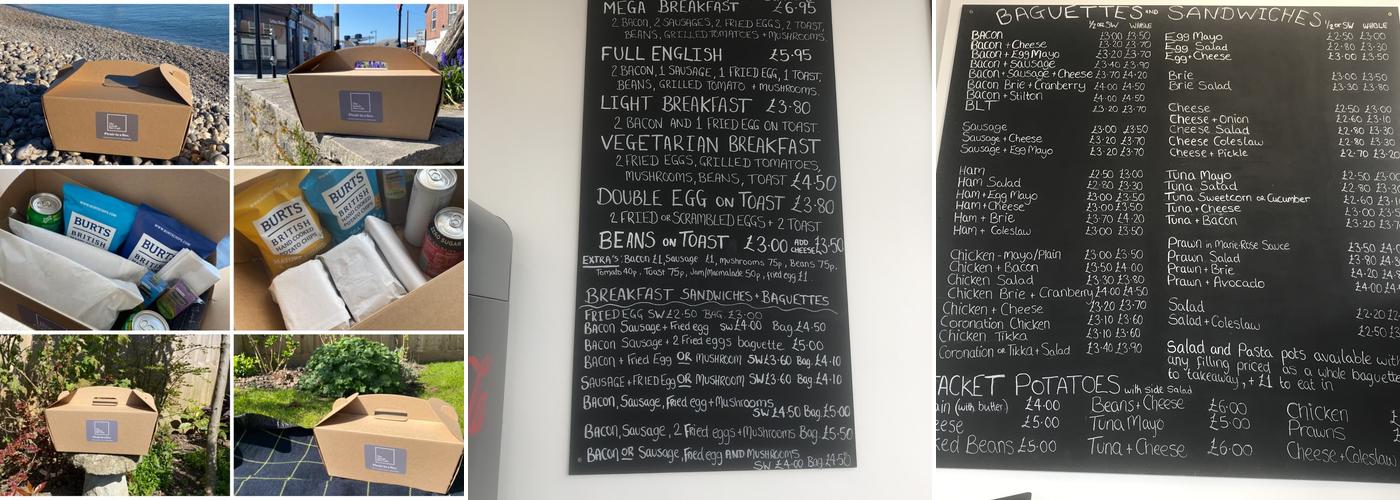 BURTS
BRITISH
HAND COOKED
POTATO CHIPS
BURTS
BRITISH
BURTS
BRITISH
HAND COOKED
POTATO CHIPS
BURTS
BRITISH
HAND COOKED
POTATO CHIPS
ZERO SUGAR
MEGA BREAKFAST £6.95
2 BACON, 2 SAUSAGES, 2 FRIED EGGS, 2 TOAST,
BEANS, GRILLED TOMATOES + MUSHROOMS.
FULL ENGLISH £5.95
2 BACON, 1 SAUSAGE, 1 FRIED EGG, 1 TOAST,
BEANS, GRILLED TOMATO + MUSHROOMS.
LIGHT BREAKFAST £3.80
2 BACON AND 1 FRIED EGG ON TOAST.
VEGETARIAN BREAKFAST
2 FRIED EGGS, GRILLED TOMATOES,
MUSHROOMS, BEANS, TOAST £4.50
DOUBLE EGG ON TOAST £3.80
2 FRIED OR SCRAMBLED EGGS + 2 TOAST
BEANS ON TOAST £3.00 ADD CHEESE £3.50
EXTRA'S: Bacon £1, Sausage £1, mushrooms 75p, Beans 75p,
Tomato 40p, Toast 75p, Jam/Marmalade 50p, fried egg £1.
BREAKFAST SANDWICHES + BAGUETTES
FRIED EGG SW £2.50 BAG. £3.00
BACON Sausage + Fried egg SW £4.00 Bag £4.50
BACON Sausage + 2 Fried eggs baguette £5.00
BACON + Fried Egg OR MUSHROOM SW £3.60 Bag. £4.10
SAUSAGE + FRIED Egg OR MUSHROOM SW £3.60 Bag. £4.10
BACON, Sausage, Fried egg + Mushrooms
SW £4.50 Bag £5.00
BACON, Sausage, 2 Fried eggs + Mushrooms Bag. £5.50
BACON OR Sausage, Fried egg AND MUSHROOMS
SW £4.00 Bag £4.50
BAGUETTES AND SANDWICHES
½ OR SW WHOLE
BACON £3.00 £3.50
Bacon + Cheese £3.20 £3.70
Bacon + Egg Mayo £3.20 £3.70
Bacon + Sausage £3.40 £3.90
Bacon + Sausage + Cheese £3.70 £4.20
Bacon Brie + Cranberry £4.00 £4.50
Bacon + Stilton £4.00 £4.50
BLT £3.20 £3.70
Sausage £3.00 £3.50
Sausage + Cheese £3.20 £3.70
Sausage + Egg Mayo £3.20 £3.70
Ham £2.50 £3.00
Ham Salad £2.80 £3.30
Ham + Egg Mayo £3.00 £3.50
Ham + Cheese £3.00 £3.50
Ham + Brie £3.70 £4.20
Ham + Coleslaw £3.00 £3.50
Chicken - mayo/Plain £3.00 £3.50
Chicken + Bacon £3.50 £4.00
Chicken Salad £3.30 £3.80
Chicken Brie + Cranberry £4.00 £4.50
Chicken + Cheese £3.20 £3.70
Coronation Chicken £3.10 £3.60
Chicken Tikka £3.10 £3.60
Coronation or Tikka + Salad £3.40 £3.90
½ OR SW WHOLE
Egg Mayo £2.50 £3.00
Egg Salad £2.80 £3.30
Egg + Cheese £3.00 £3.50
Brie £3.00 £3.50
Brie Salad £3.30 £3.80
Cheese £2.50 £3.00
Cheese + Onion £2.60 £3.10
Cheese Salad £2.80 £3.30
Cheese Coleslaw £2.80 £3.30
Cheese + Pickle £2.70 £3.20
Tuna Mayo £2.50 £3.00
Tuna Salad £2.80 £3.30
Tuna Sweetcorn or Cucumber £2.60
Tuna + Cheese £3.00
Tuna + Bacon £3.20
Prawn in Marie-Rose Sauce £3.50
Prawn Salad £3.80
Prawn + Brie £4.20
Prawn + Avocado £4.00
Salad £2.20
Salad + Coleslaw £2.50
Salad and Pasta pots available with
any filling priced as a whole baguette
to takeaway, + £1 to eat in
JACKET POTATOES with side Salad
(with butter) £4.00
£5.00
Beans £5.00
Beans + Cheese £6.00
Tuna Mayo £5.00
Tuna + Cheese £6.00
Chicken
Prawns
Cheese + Coleslaw